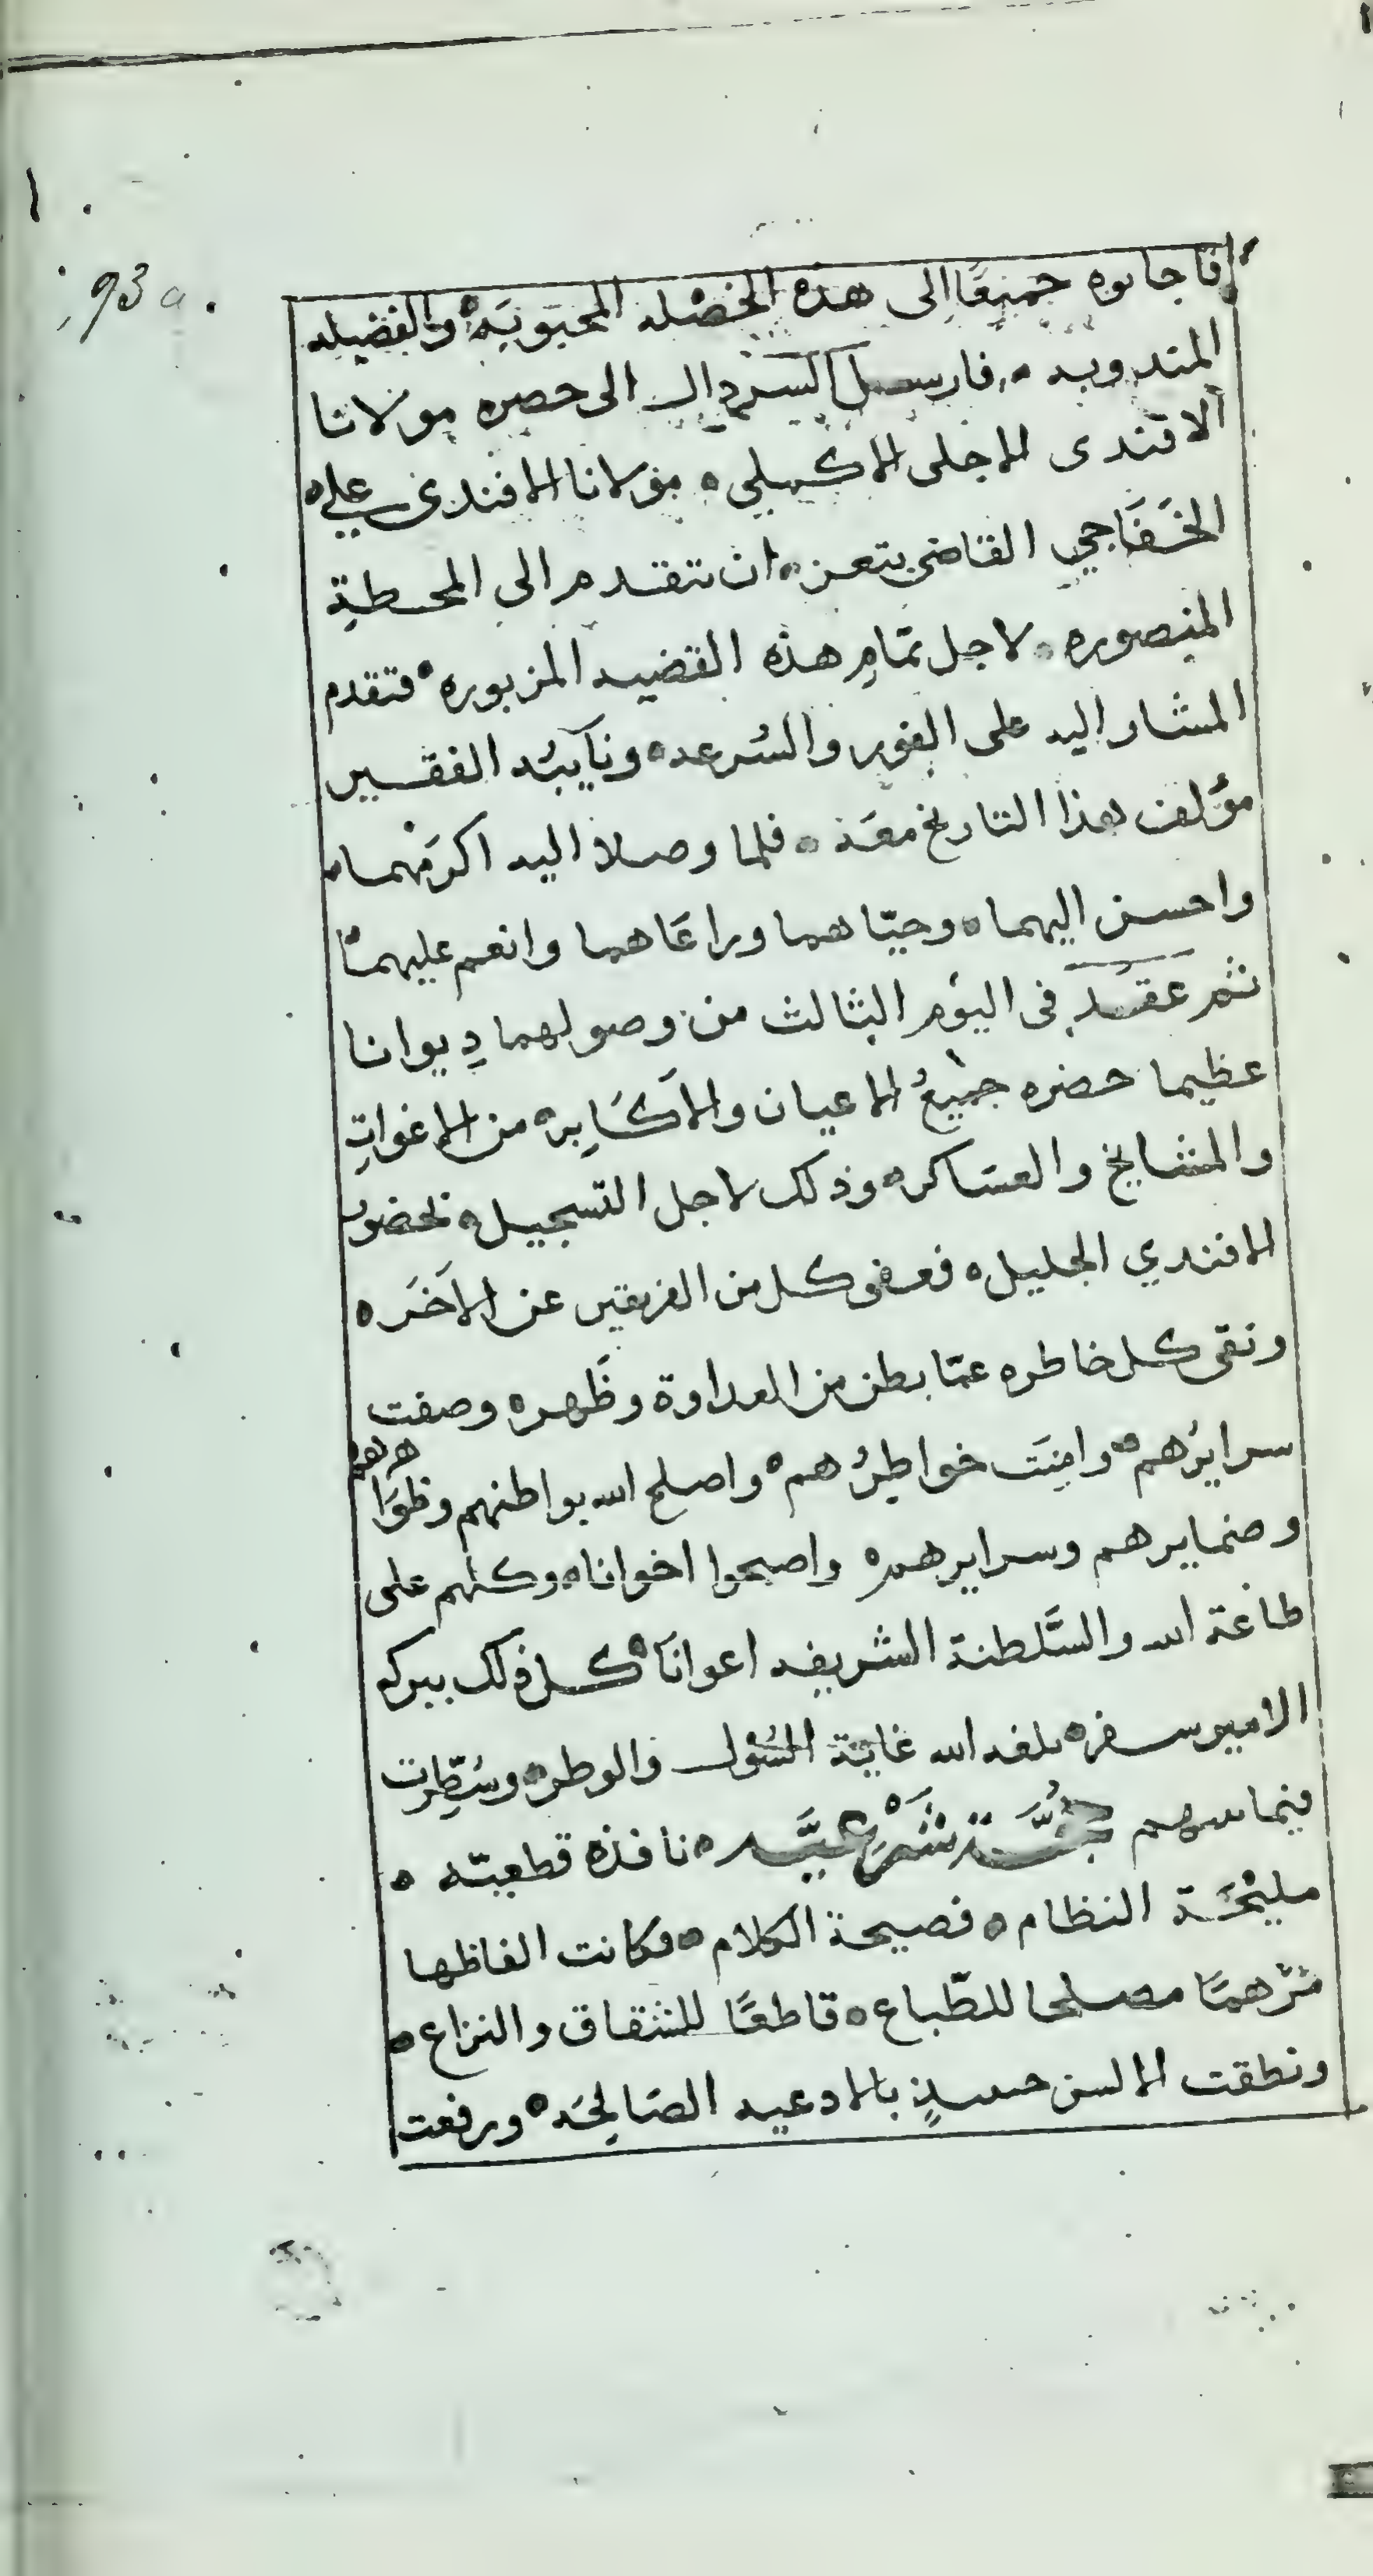 93a.
فاجابوه جميعًا الى هذه الخصْله المحبَوبيَه والفضيله
المندوبه ه فارسل السردار الى حضره مولانا
الافندى الاجلى الاكملى ه مولانا الافندى على ه
الخَفَاجي القاضى بتعز ه ان تتقدم الى المحطةِ
المنصوره ه لاجل تمَامِ هذه القضيه المزبوره ه فتقدم
المشار اليه على الفور والسُرعه ه ونآيبُه الفقير
مؤلف هذا التاريخ معَه ه فلما وصلا اليه اكرَمَهما ه
واحسن اليهما ه وحيّاهما وراعَاهما وانعم عليهما
ثم عقد فى اليوم الثالث من وصولهما دِيوانا
عظيما حضره جميعُ الاعيان والاَكَابِر ه من الاغواتِ
والمشايخ والعسَاكر ه وذلك لاجل التسجيل ه بحضور
الافندي الجليل ه فعفى كل من الفريقين عن الاَخَر ه
ونقى كل خاطره عمّا بطن من العداوة وظَهر ه وصفت
سرايرُهم ه وامِنَت خواطِرُهم ه واصلح الله بواطنهم وظوَاهرهم
وضمايرهم وسرايرهم ه واصبحوا اخوانا ه وكلهم على
طاعة الله والسَّلطنة الشريفه اعوانَا ه كل ذلك ببركه
الامير سفر ه بلغه الله غاية السُؤل والوطر ه وسُطِّرت
فيما بينهم حُجَّة شَرْعيَّه ه نافذه قطعيّه ه
مليْحَة النظام ه فصيحة الكلام ه فكانت الفاظها
مَرْهمًا مصلحا للطّباع ه قاطعًا للشقاق والنزاع ه
ونطقت الالسن حينيذٍ بالادعيه الصَالحَه ه ورفعت